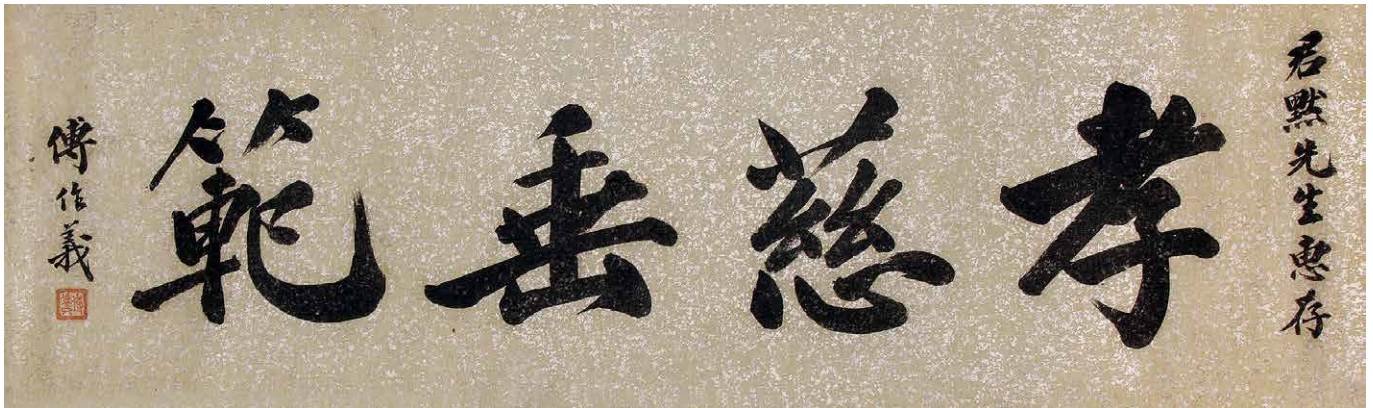 君默先生惠存
孝慈垂範
傅作義